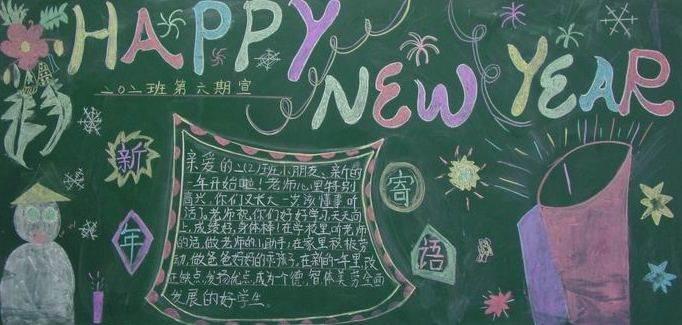 HAPPY
NEW YEAR
202班第六期宣
新年
寄语
亲爱的202班小朋友、新的
一年开始啦！老师心里特别
高兴，你们又长大一岁该懂事听
话了。老师祝你们好好学习天天向
上，成绩好，身体棒！在学校里听老师
的话，做老师的小助手；在家里积极劳
动，做爸爸妈妈的乖孩子，在新的一年里，改
正缺点，发扬优点，成为一个德，智体美劳全面
发展的好学生。